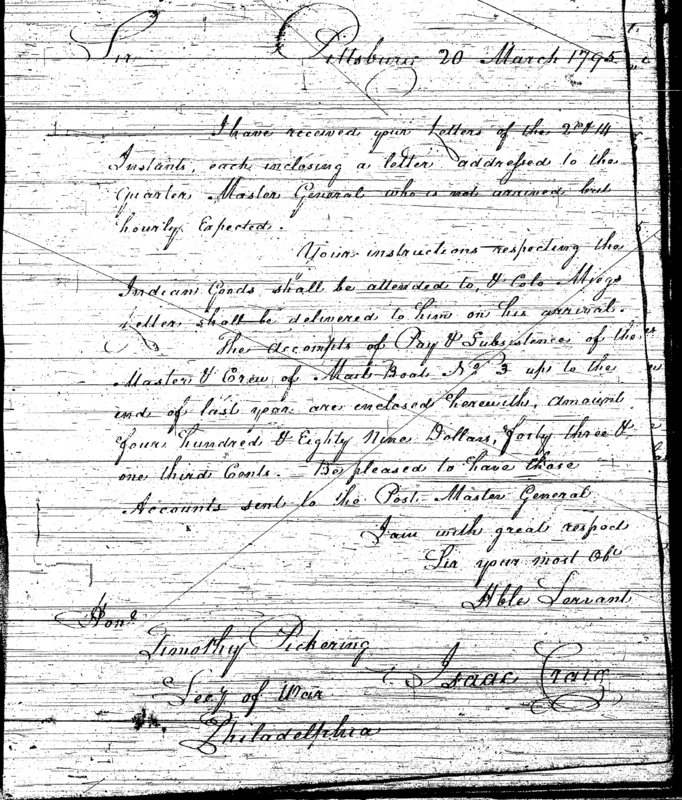 Sir Pittsburg 20 March 1795
I have received your Letters of the 2nd & 14
Instant, each inclosing a letter addressed to the
Quarter Master General who is not arrived but
hourly Expected.
Your instructions respecting the
Indian Goods shall be attended to, & Colo Meigs
Letter shall be delivered to him on his arrival.
The Accompts of Pay & Subsistence of the
Master & Crew of Mail-Boat No 3 up to the
end of last year are enclosed herewith, amount
four hundred & Eighty Nine Dollars, forty three &
one third Cents. Be pleased to have those
Accounts sent to the Post-Master General
I am with great respect
Sir your most Ob
Hble Servant
Honl
Timothy Pickering
Isaac Craig
Secy of War
Philadelphia